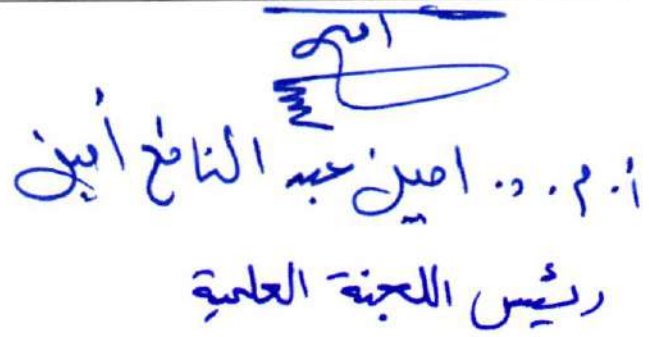 أ.م.د. امين عبد النافع أمين
رئيس اللجنة العلمية